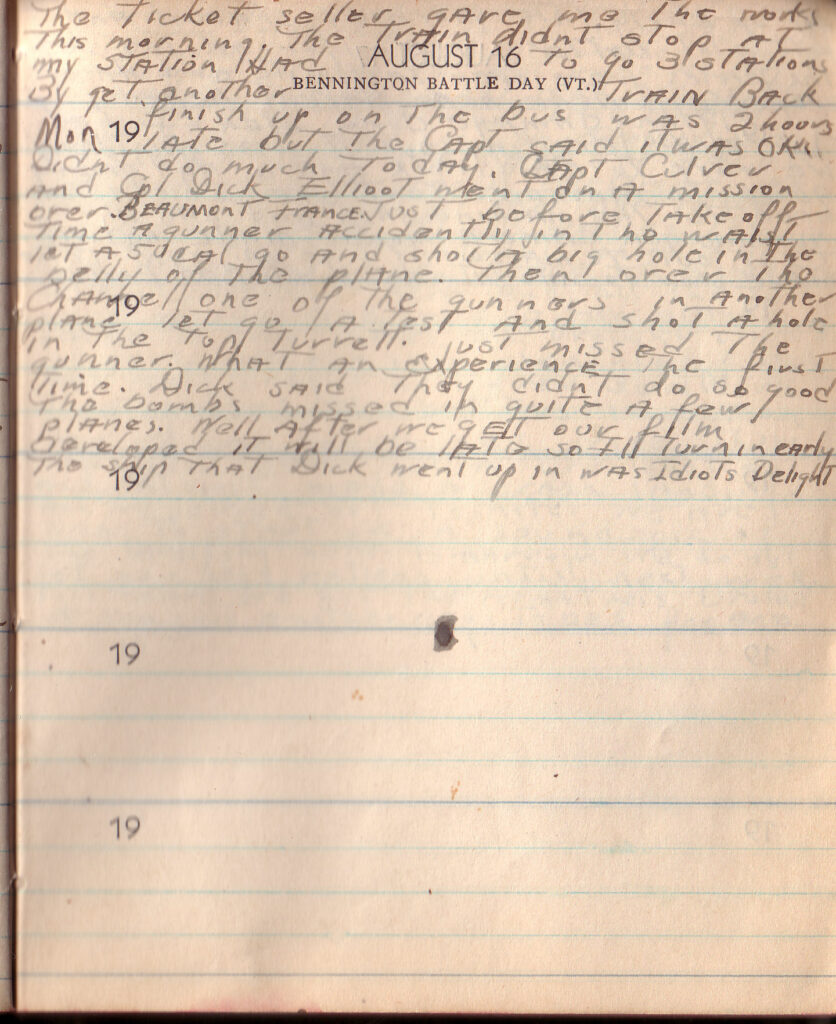 The Ticket seller gave me The works
This morning. The Train didnt stop AT
my STATION HAd To go 3 STATIONS
AUGUST 16
BENNINGTON BATTLE DAY (VT.)
By get another TRAIN BACK
finish up on The bus was 2 hours
Mon 19 lATe but The CApt SAId iT wAS OK.
Didnt do much Today. CApt Culver
And Cpl Dick Ellioot went on A mission
over. BEAUMONT FRANCE JUST before TAKe off
Time A gunner Accidently in The wAIST
leT A 50 CAl go And shoT A big hole in The
belly of The plane. Then over The
Channel one of The gunners in Another
19
plane leT go A Test And shoT A hole
in The Top Turrell. just missed The
gunner. WhAT An experience The first
Time. Dick SAId They didnt do so good
The bombs missed in quite A few
plAnes. Well AfTer we geT our film
Developed iT will be lATe so I'll Turn in early
The ship ThAT Dick went up in wAS Idiots Delight
19
19
19